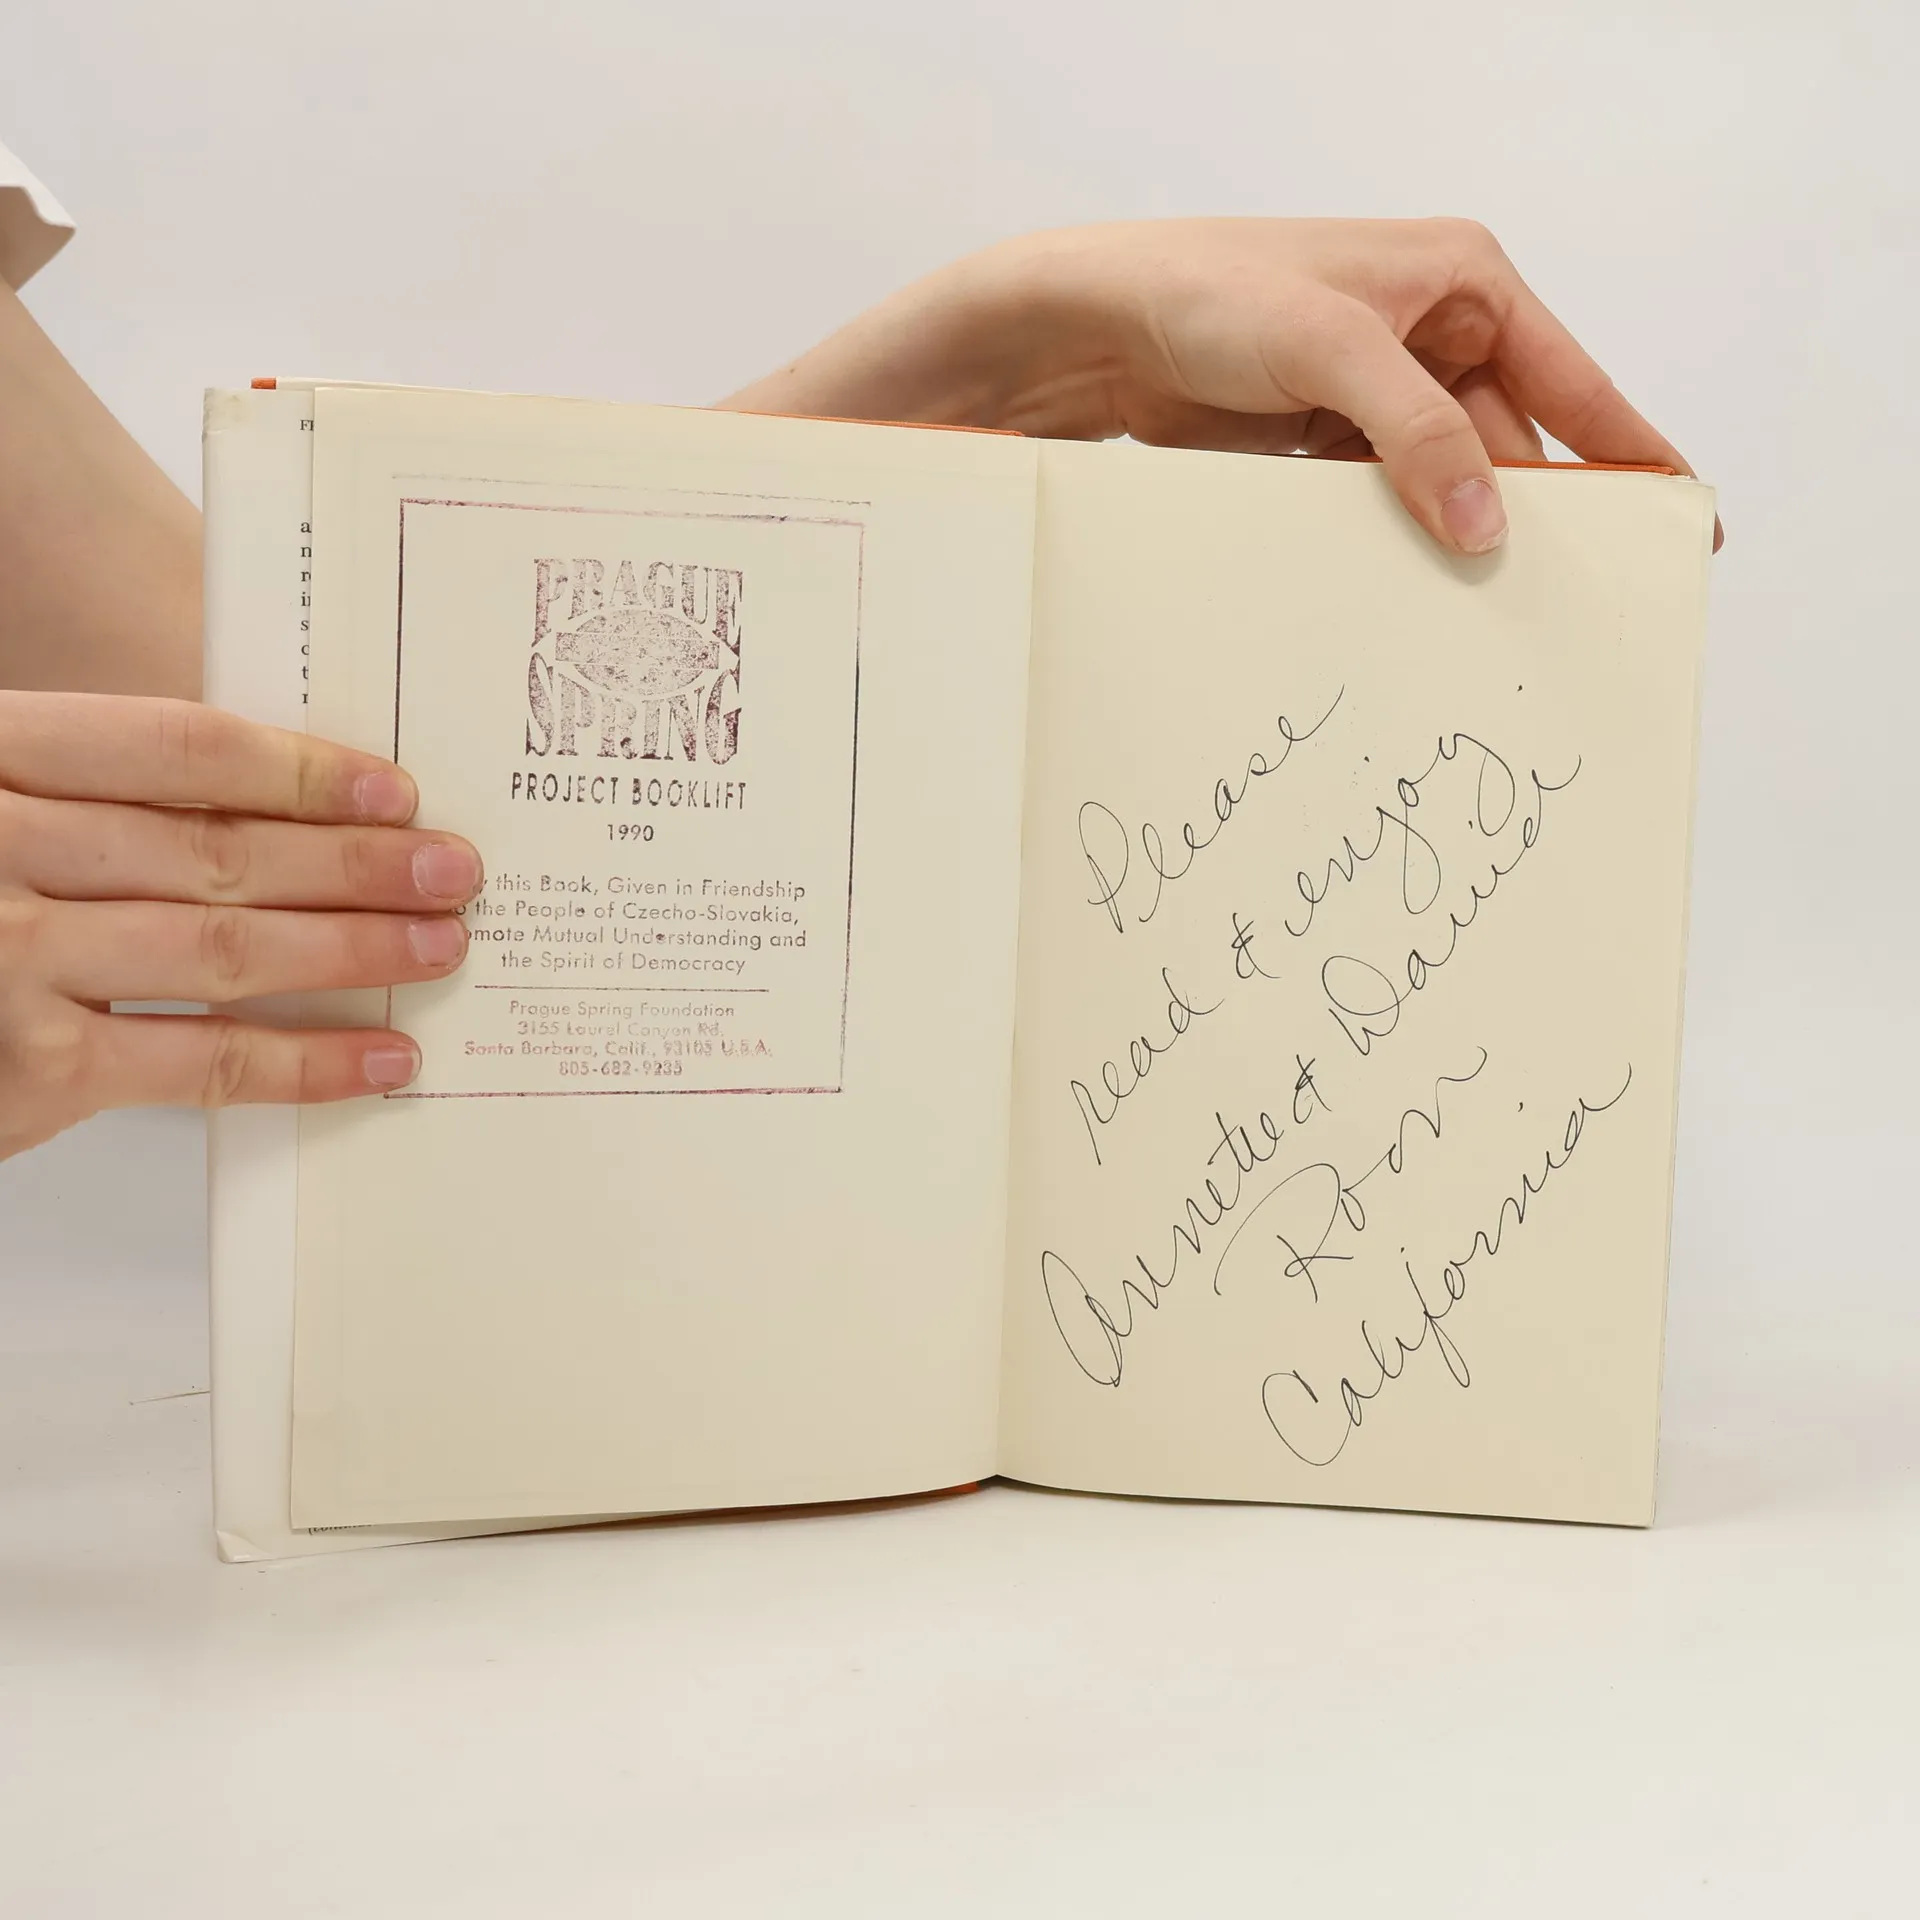 PRAGUE
SPRING
PROJECT BOOKLIFT
1990
this Book, Given in Friendship
the People of Czecho-Slovakia,
Mutual Understanding and
the Spirit of Democracy
Prague Spring Foundation
3155 Laurel Canyon Rd.
Santa Barbara, Calif., 93105 U.S.A.
805-682-9235
Please
read & enjoy.
Annette & David
Ron
California